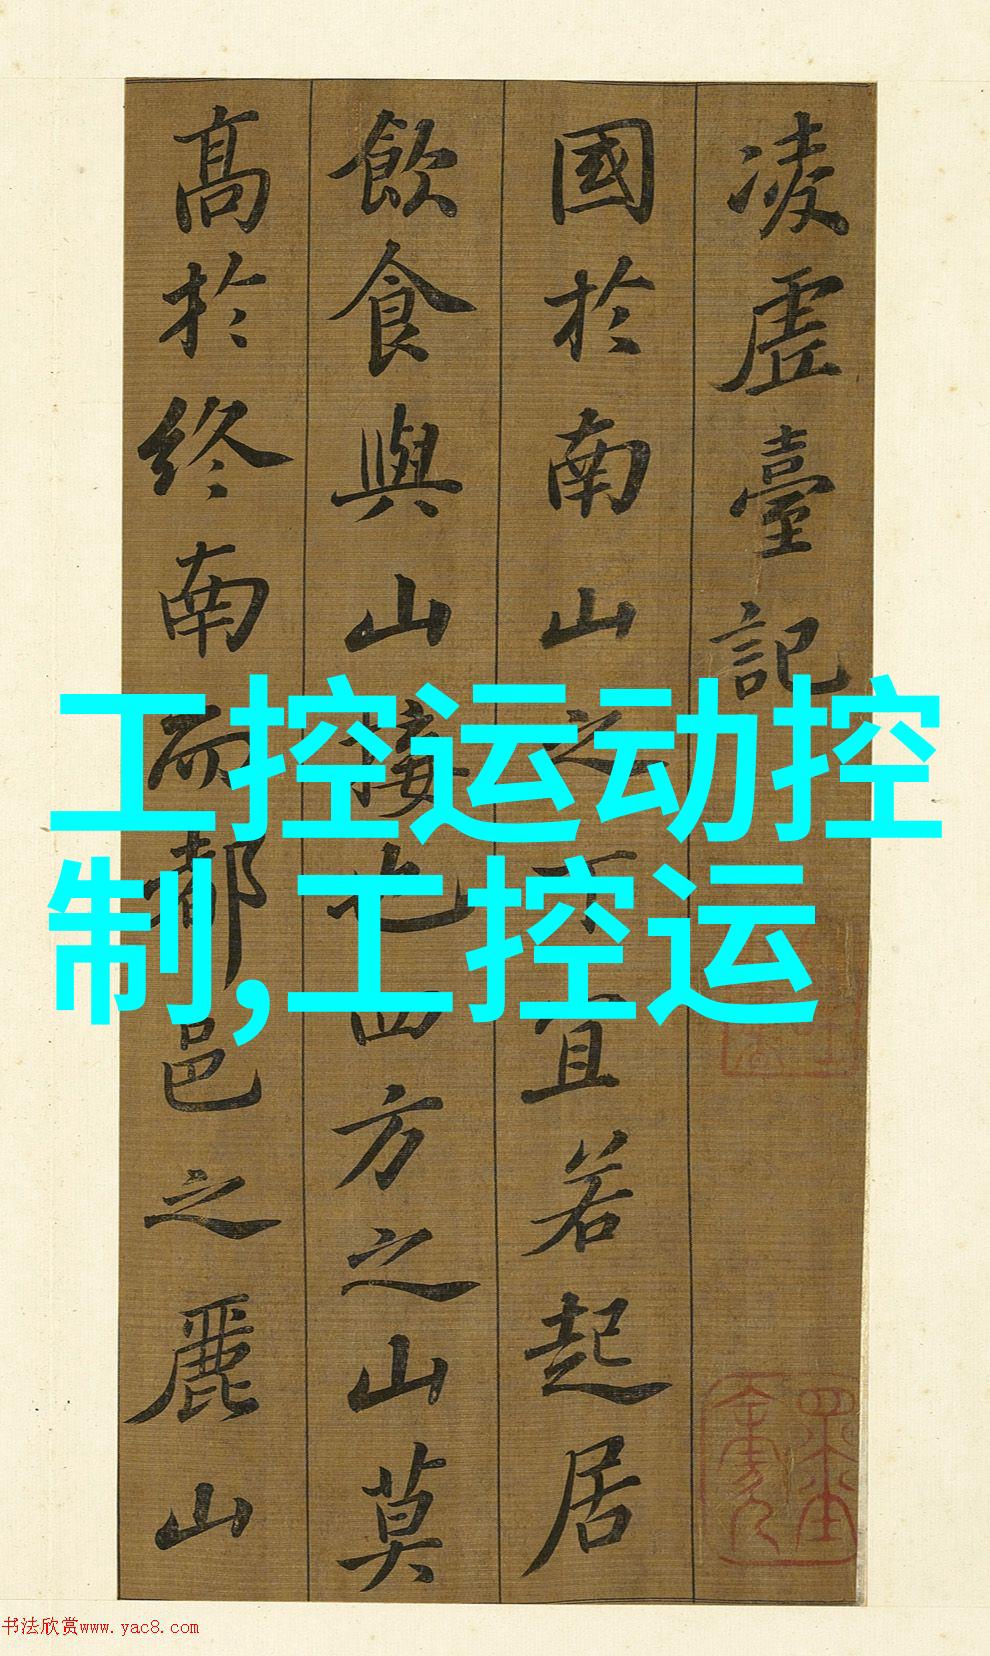 凌虛臺記
國於南山之下宜若起居
飲食與山接也四方之山莫
高於終南而都邑之麗山
工控运动控
制,工控运
书法欣赏www.yac8.com